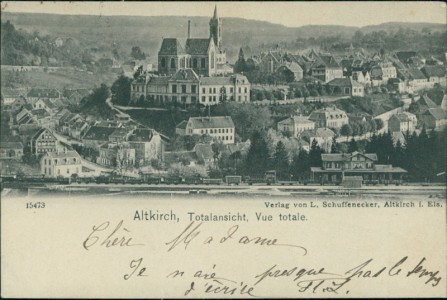 15473
Verlag von L. Schuffenecker, Altkirch i. Els.
Altkirch, Totalansicht, Vue totale.
Chère Madame
Je n'aie presque pas le temps
d'écrire H. L.